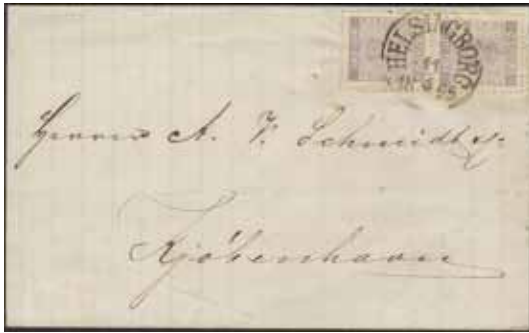 HELSINGBORG
Herrn A. F. Schmidt
Kjöbenhavn